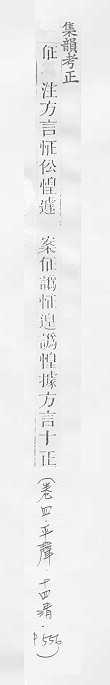 集韻考正
佂 注方言怔伀惶遽 案佂譌怔遑譌惶據方言十正
(卷四·平聲·十四清·P556)